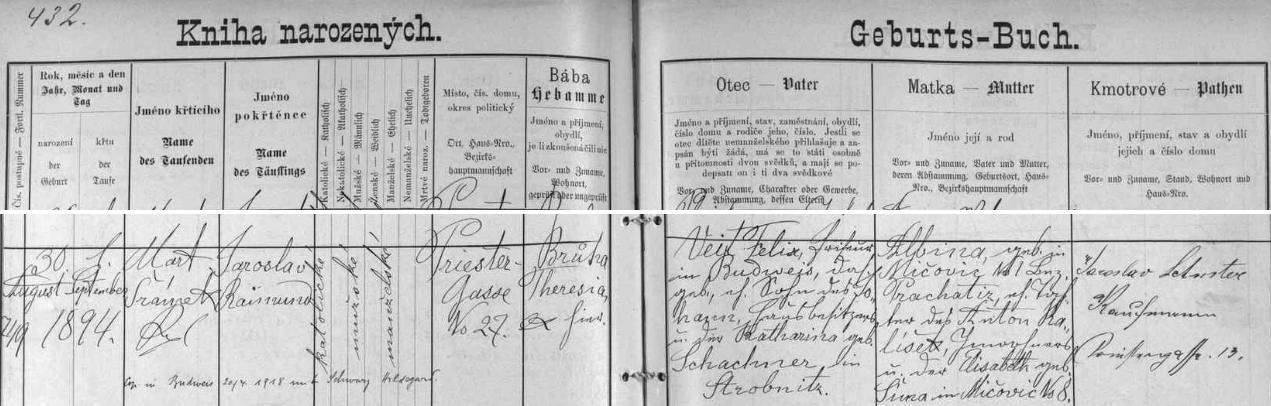 432.
Kniha narozených.
Geburts-Buch.
Čís. postupné — Fortl. Nummer
Rok, měsíc a den
Jahr, Monat und
Tag
narození
der
Geburt
křtu
der
Taufe
Jméno křtícího
Name
des Taufenden
Jméno
pokřtěnce
Name
des Täuflings
Katolické — Katholisch
Nekatolické — Akatholisch
Mužské — Männlich
Ženské — Weiblich
Manželské — Ehelich
Nemanželské — Unehelich
Mrtvě naroz. — Todtgeboren
Místo, čís. domu,
okres politický
Ort, Haus-Nro.,
Bezirks-
hauptmannschaft
Bába
Hebamme
Jméno a příjmení,
obydlí,
je-li zkoušená čili nic
Vor- und Zuname,
Wohnort,
geprüft aber ungeprüft
Otec — Vater
Jméno a příjmení, stav, zaměstnání, obydlí,
číslo domu a rodiče jeho, číslo. Jestli se
otec dítěte nemanželského přihlašuje a za-
psán býti žádá, má se to státi osobně
u přítomnosti dvou svědků, a mají se po-
depsati on i ti dva svědkové
Vor- und Zuname, Charakter oder Gewerbe,
Abstammung, dessen Eltern
Matka — Mutter
Jméno její a rod
Vor- und Zuname, Vater und Mutter,
deren Abstammung, Geburtsort, Haus-
Nro., Bezirkshauptmannschaft
Kmotrové — Pathen
Jméno, příjmení, stav a obydlí
jejich a číslo domu
Vor- und Zuname, Stand, Wohnort und
Haus-Nro.
30
August
1.
September
1894.
Mart
Jaroslav
Raimund
katolické
mužské
manželské
Priester-
Gasse
No 27.
Brůha
Theresia,
Veit Felix, Friseur
in Budweis, das.
geb., eh. Sohn des Jo-
hann, Hausbesitzers
u. der Katharina geb.
Schachner, in
Strobnitz.
Albina, geb. in
Mičovic No 1 Bez.
Prachatiz, eh. Toch-
ter des Anton Ka-
lisek, Inwohners
u. der Elisabeth geb.
Šima in Mičovic No 8.
Jaroslav
Kaufmann
13.
in Budweis 20/4 1918 mit Schwarz Hildegard.